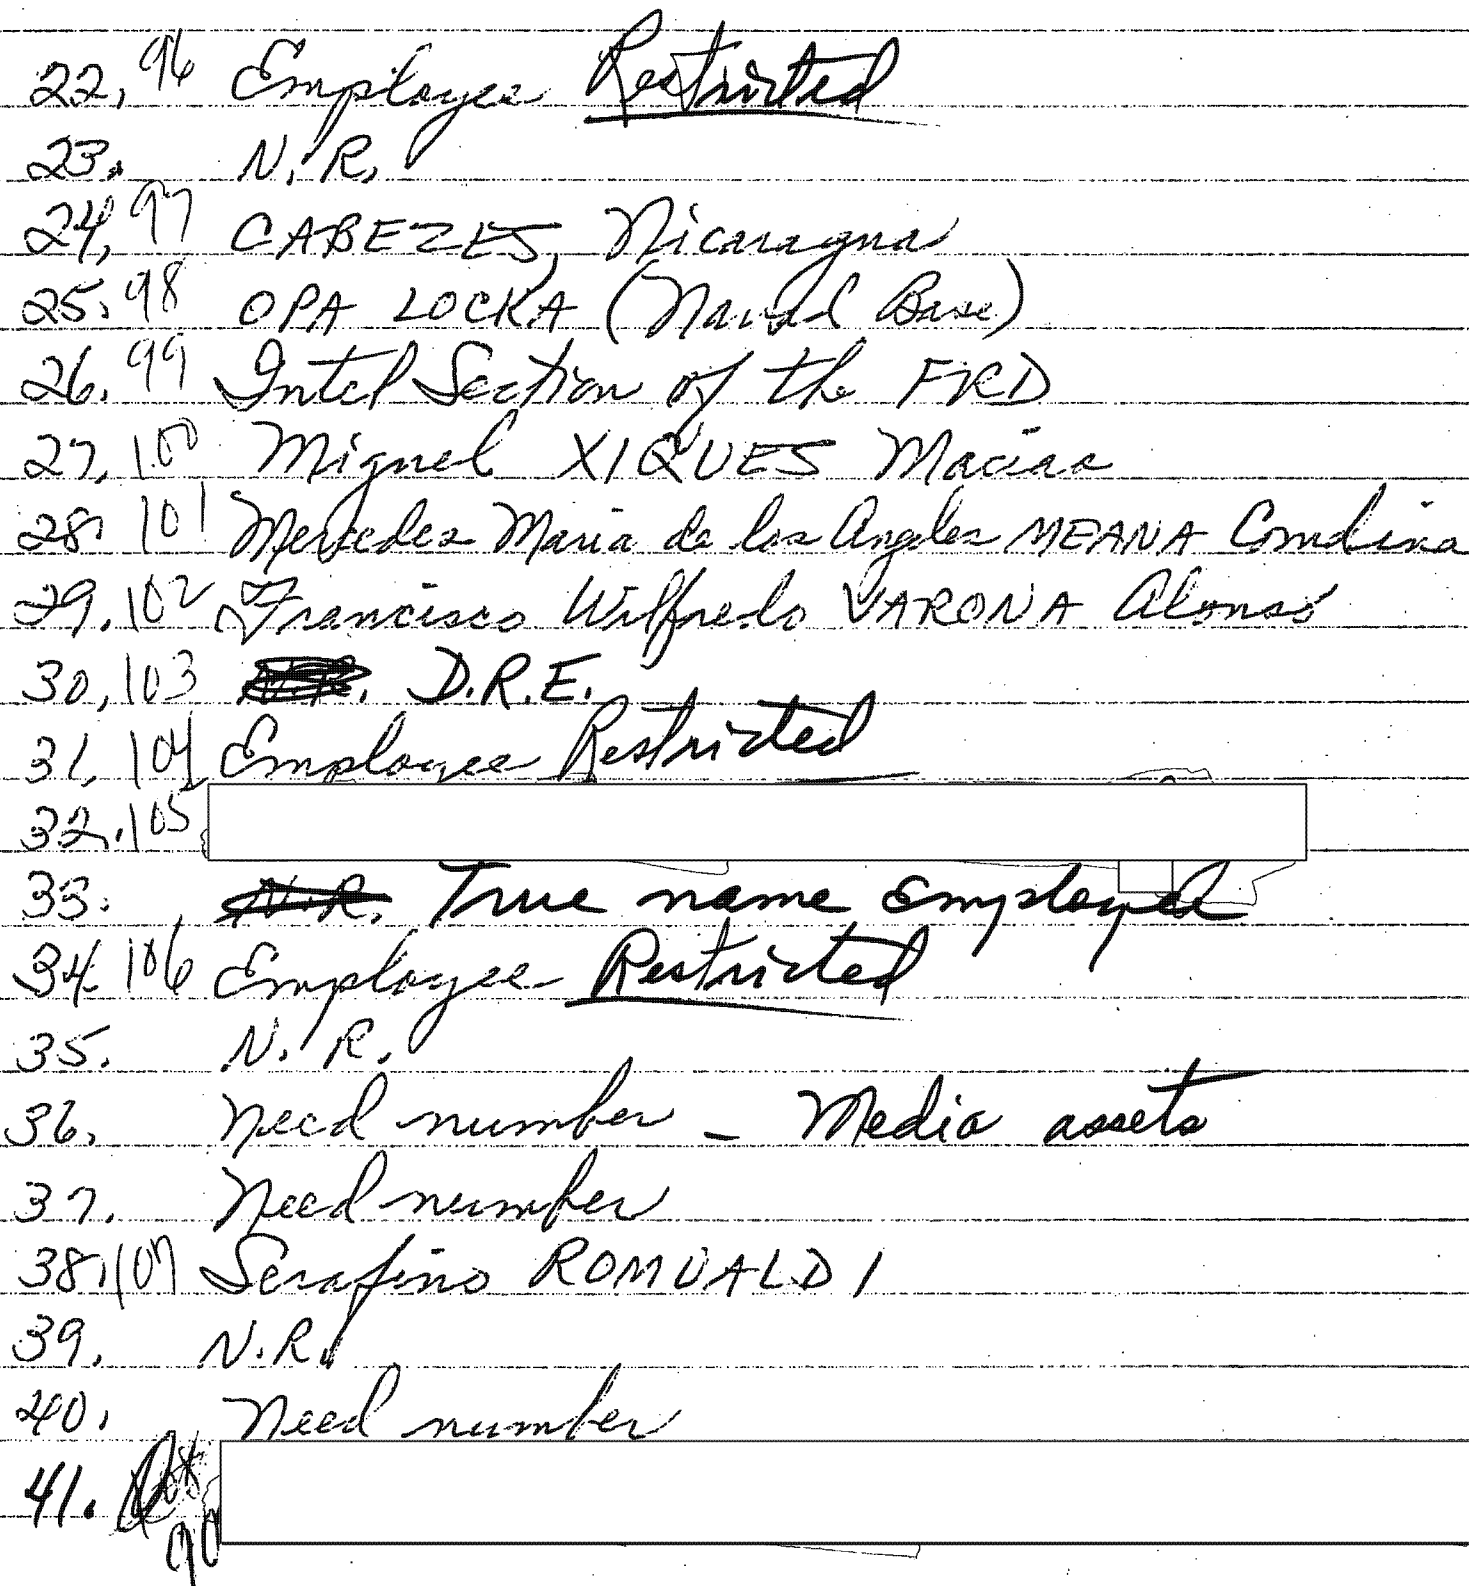 22. 96 Employee Restricted
23. N.R.
24. 97 CABEZES, Nicaragua
25. 98 OPA LOCKA (Naval Base)
26. 99 Intel Section of the FRD
27. 100 Miguel XIQUES Macias
28. 101 Mercedes Maria de los Angeles MEANA
29. 102 Francisco Wilfredo VARONA Alonso
30. 103 D.R.E.
31. 104 Employee Restricted
32. 105
33. N.R. True name employee
34. 106 Employee Restricted
35. N.R.
36. Need number - Media assets
37. Need number
38. 107 Serafino ROMUALDI
39. N.R.
40. Need number
41.
90